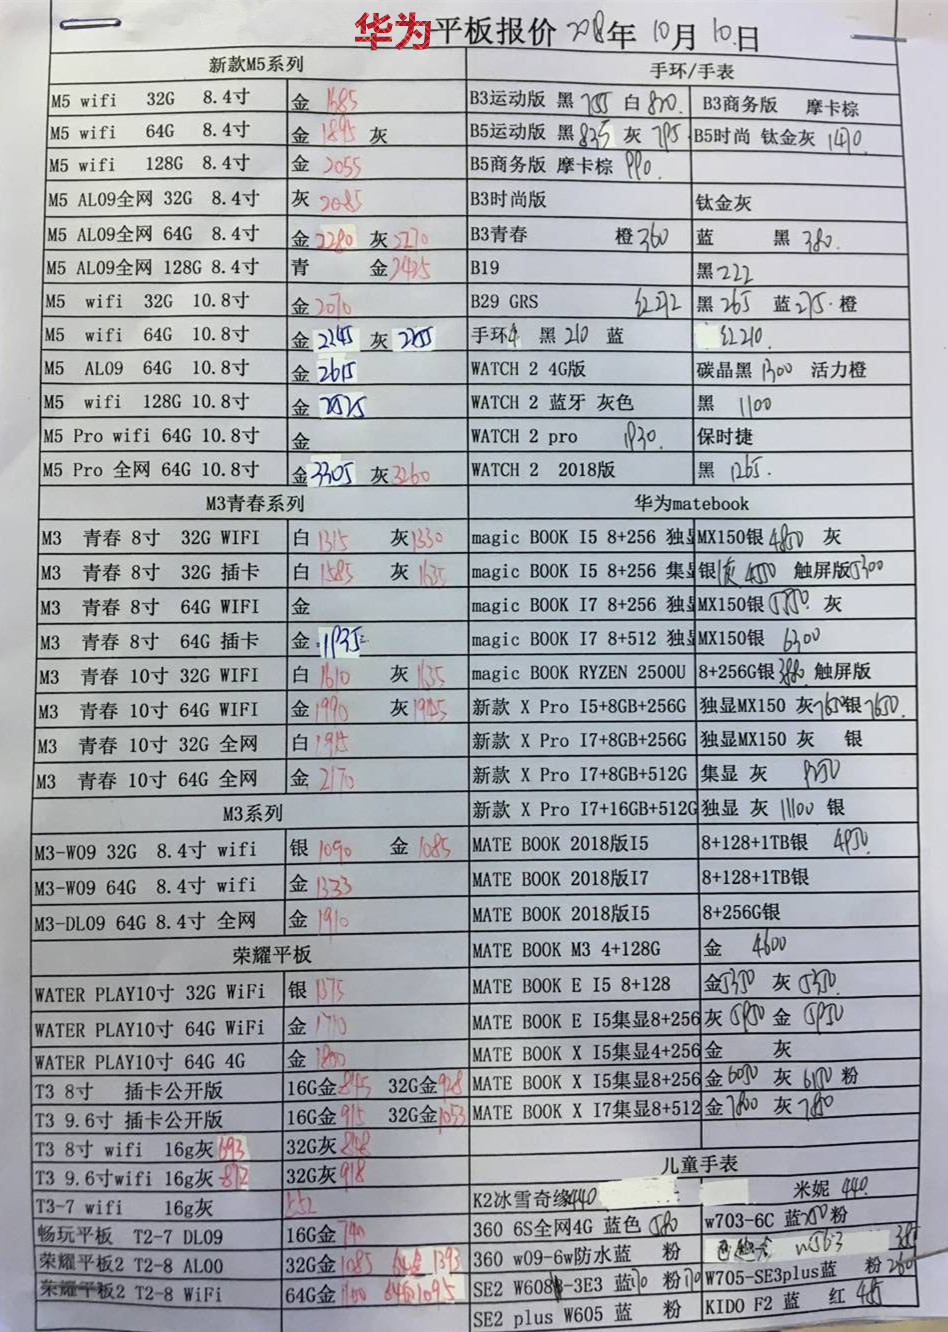 华为 平板报价 2018年 10月 10日
新款M5系列
M5 wifi 32G 8.4寸 金 1685
M5 wifi 64G 8.4寸 金 1895 灰
M5 wifi 128G 8.4寸 金 2055
M5 AL09全网 32G 8.4寸 灰 2085
M5 AL09全网 64G 8.4寸 金2280 灰2270
M5 AL09全网 128G 8.4寸 青 金2435
M5 wifi 32G 10.8寸 金2070
M5 wifi 64G 10.8寸 金2245 灰2255
M5 AL09 64G 10.8寸 金2615
M5 wifi 128G 10.8寸 金2525
M5 Pro wifi 64G 10.8寸 金
M5 Pro 全网 64G 10.8寸 金3305 灰3260
M3青春系列
M3 青春 8寸 32G WIFI 白1315 灰1330
M3 青春 8寸 32G 插卡 白1585 灰1635
M3 青春 8寸 64G WIFI 金
M3 青春 8寸 64G 插卡 金1935
M3 青春 10寸 32G WIFI 白1610 灰1635
M3 青春 10寸 64G WIFI 金1990 灰1985
M3 青春 10寸 32G 全网 白1915
M3 青春 10寸 64G 全网 金2170
M3系列
M3-W09 32G 8.4寸 wifi 银1090 金1085
M3-W09 64G 8.4寸 wifi 金1333
M3-DL09 64G 8.4寸 全网 金1910
荣耀平板
WATER PLAY10寸 32G WiFi 银1375
WATER PLAY10寸 64G WiFi 金1710
WATER PLAY10寸 64G 4G 金1800
T3 8寸 插卡公开版 16G金845 32G金928
T3 9.6寸 插卡公开版 16G金915 32G金1053
T3 8寸 wifi 16g灰693 32G灰848
T3 9.6寸wifi 16g灰812 32G灰918
T3-7 wifi 16g灰 552
畅玩平板 T2-7 DL09 16G金740
荣耀平板2 T2-8 AL00 32G金1085 64金1393
荣耀平板2 T2-8 WiFi 64G金1100 64G1095
手环/手表
B3运动版 黑755 白820. B3商务版 摩卡棕
B5运动版 黑835 灰795. B5时尚 钛金灰1470
B5商务版 摩卡棕 990.
B3时尚版 钛金灰
B3青春 橙360 蓝 黑 380.
B19 黑222
B29 GRS 红272 黑265 蓝275. 橙
手环4 黑210 蓝 红210.
WATCH 2 4G版 碳晶黑1300 活力橙
WATCH 2 蓝牙 灰色 黑 1100
WATCH 2 pro 1930. 保时捷
WATCH 2 2018版 黑 1265.
华为matebook
magic BOOK I5 8+256 独显MX150银4850 灰
magic BOOK I5 8+256 集显银 4550 触屏版5300
magic BOOK I7 8+256 独显MX150银 灰
magic BOOK I7 8+512 独显MX150银 6300
magic BOOK RYZEN 2500U 8+256G银3880 触屏版
新款 X Pro I5+8GB+256G 独显MX150 灰7650银7650.
新款 X Pro I7+8GB+256G 独显MX150 灰 银
新款 X Pro I7+8GB+512G 集显 灰 9250
新款 X Pro I7+16GB+512G 独显 灰 11100 银
MATE BOOK 2018版I5 8+128+1TB银 4950.
MATE BOOK 2018版I7 8+128+1TB银
MATE BOOK 2018版I5 8+256G银
MATE BOOK M3 4+128G 金 4600
MATE BOOK E I5 8+128 金5350 灰5350.
MATE BOOK E I5集显8+256 灰5950 金5950
MATE BOOK X I5集显4+256 金 灰
MATE BOOK X I5集显8+256 金6050 灰6150 粉
MATE BOOK X I7集显8+512 金7800 灰7850
儿童手表
K2冰雪奇缘440 米妮 440.
360 6S全网4G 蓝色580 w703-6C 蓝250粉
360 w09-6w防水蓝 粉 W563 385
SE2 W608 -3E3 蓝170 粉170 W705-SE3plus蓝 粉260
SE2 plus W605 蓝 粉 KIDO F2 蓝 红 485